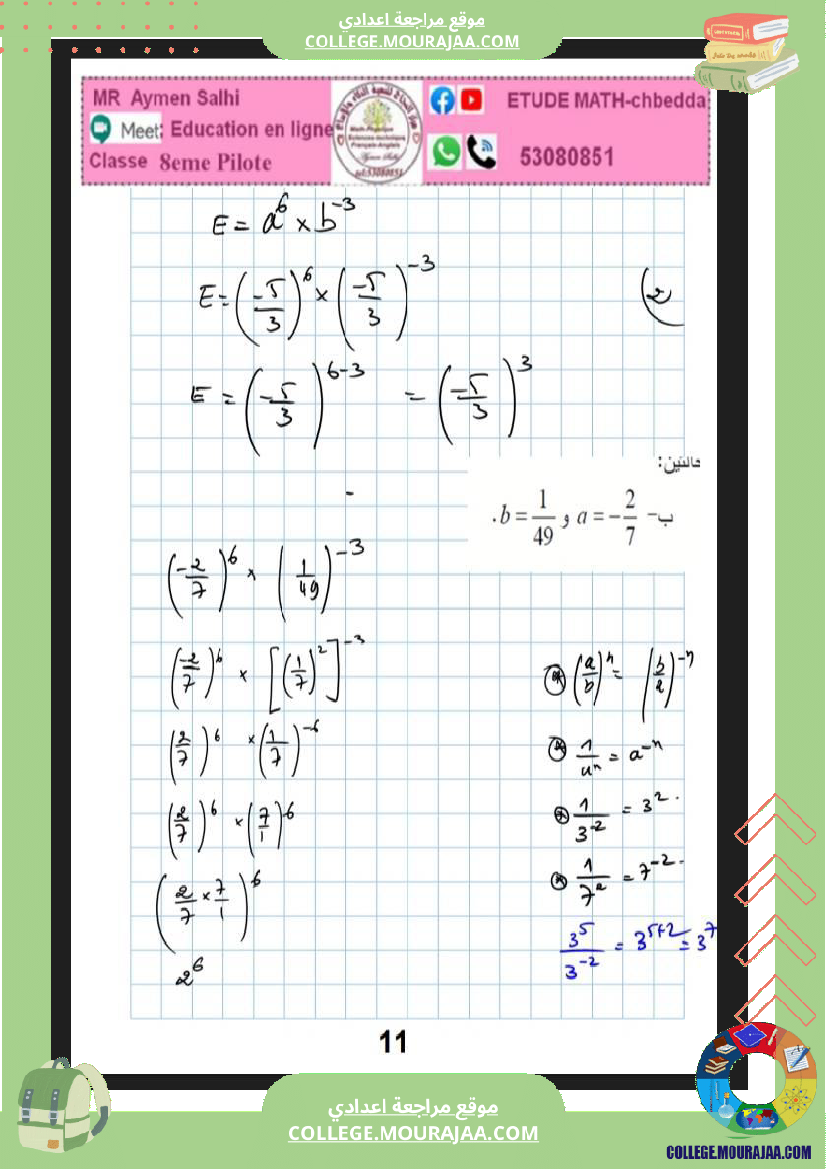 موقع مراجعة اعدادي
COLLEGE.MOURAJAA.COM
MR Aymen Salhi
Meet: Education en ligne
Classe 8eme Pilote
ETUDE MATH-chbedda
53080851
E = a^6 × b^-3
E = (-5/3)^6 × (-5/3)^-3
(2
E = (-5/3)^6-3 = (-5/3)^3
التين:
ب- a = -2/7 و b = 1/49.
(-2/7)^6 × (1/49)^-3
(-2/7)^6 × [(1/7)^2]^-3
(2/7)^6 × (1/7)^-6
(2/7)^6 × (7/1)^6
(2/7 × 7/1)^6
2^6
(a/b)^n = (b/a)^-n
1/a^n = a^-n
1/3^-2 = 3^2.
1/7^2 = 7^-2.
3^5/3^-2 = 3^5+2 = 3^7
11
موقع مراجعة اعدادي
COLLEGE.MOURAJAA.COM
COLLEGE.MOURAJAA.COM